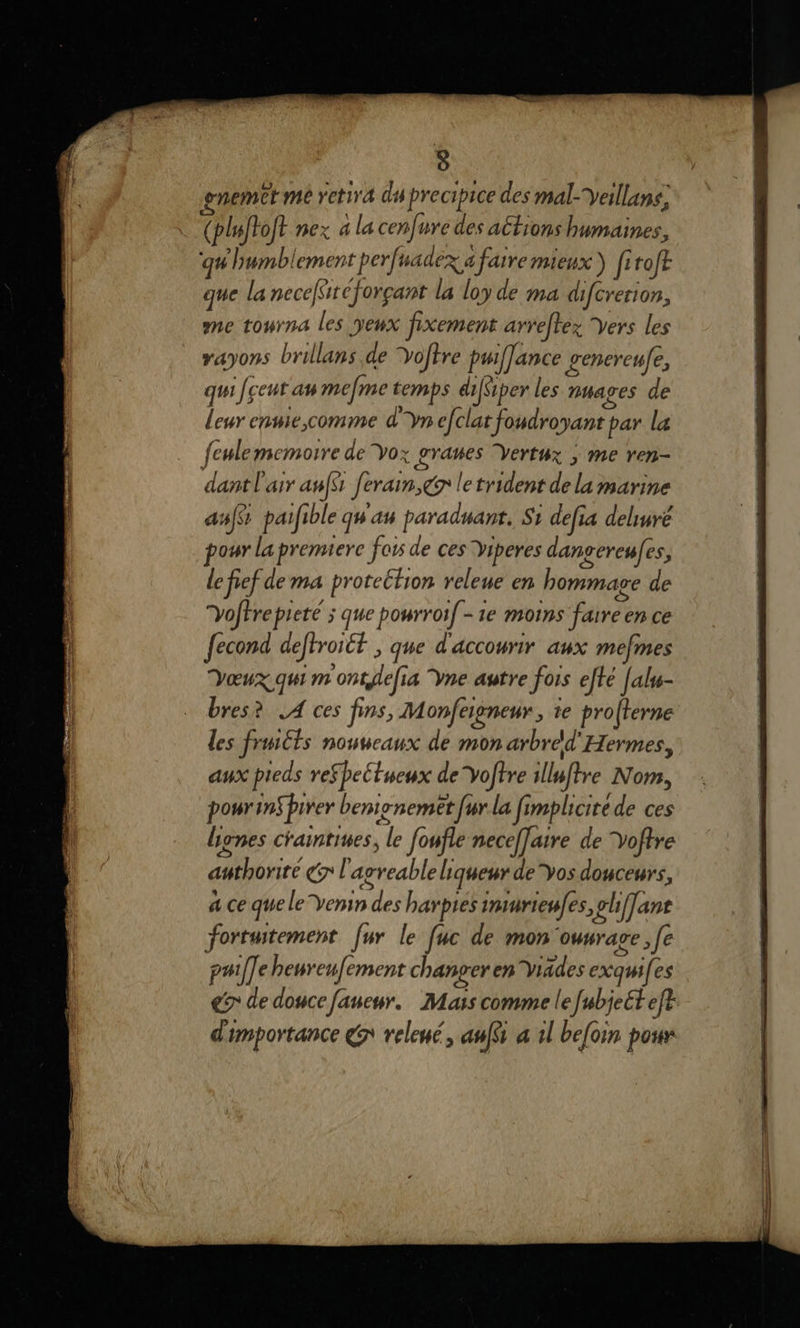 8
gnemẽt me retira du precipice des mal-veillans,
(pluſtoſt nez à la cenſure des actions humaines,
qu'humblement perſuadez à faire mieux) ſi toſt
que la neceſsité forçant la loy de ma diſcretion,
me tourna les yeux fixement arreſtez vers les
rayons brillans de voſtre puiſſance genereuſe,
qui ſçeut au meſme temps diſsiper les nuages de
leur enuie, comme d'vn eſclat foudroyant par la
ſeule memoire de voz graues vertuz ; me ren-
dant l'air auſsi ſerain, & le trident de la marine
auſsi paiſible qu'au paraduant. Si deſia deliuré
pour la premiere fois de ces viperes dangereuſes,
le fief de ma protection releue en hommage de
voſtre pieté ; que pourroiſ-ie moins faire en ce
ſecond deſtroict , que d'accourir aux meſmes
vœux qui m'ont deſia vne autre fois eſté ſalu-
bres? A ces fins, Monſeigneur, ie proſterne
les fruicts nouueaux de mon arbre d'Hermes,
aux pieds reſpectueux de voſtre illuſtre Nom,
pour inſpirer benignemẽt ſur la ſimplicité de ces
lignes craintiues, le ſoufle neceſſaire de voſtre
authorité & l'agreable liqueur de vos douceurs,
à ce que le venin des harpies iniurieuſes, gliſſant
fortuitement ſur le ſuc de mon ouurage, ſe
puiſſe heureuſement changer en viãdes exquiſes
& de douce ſaueur. Mais comme le ſubject eſt
d'importance & releué, auſsi a il beſoin pour